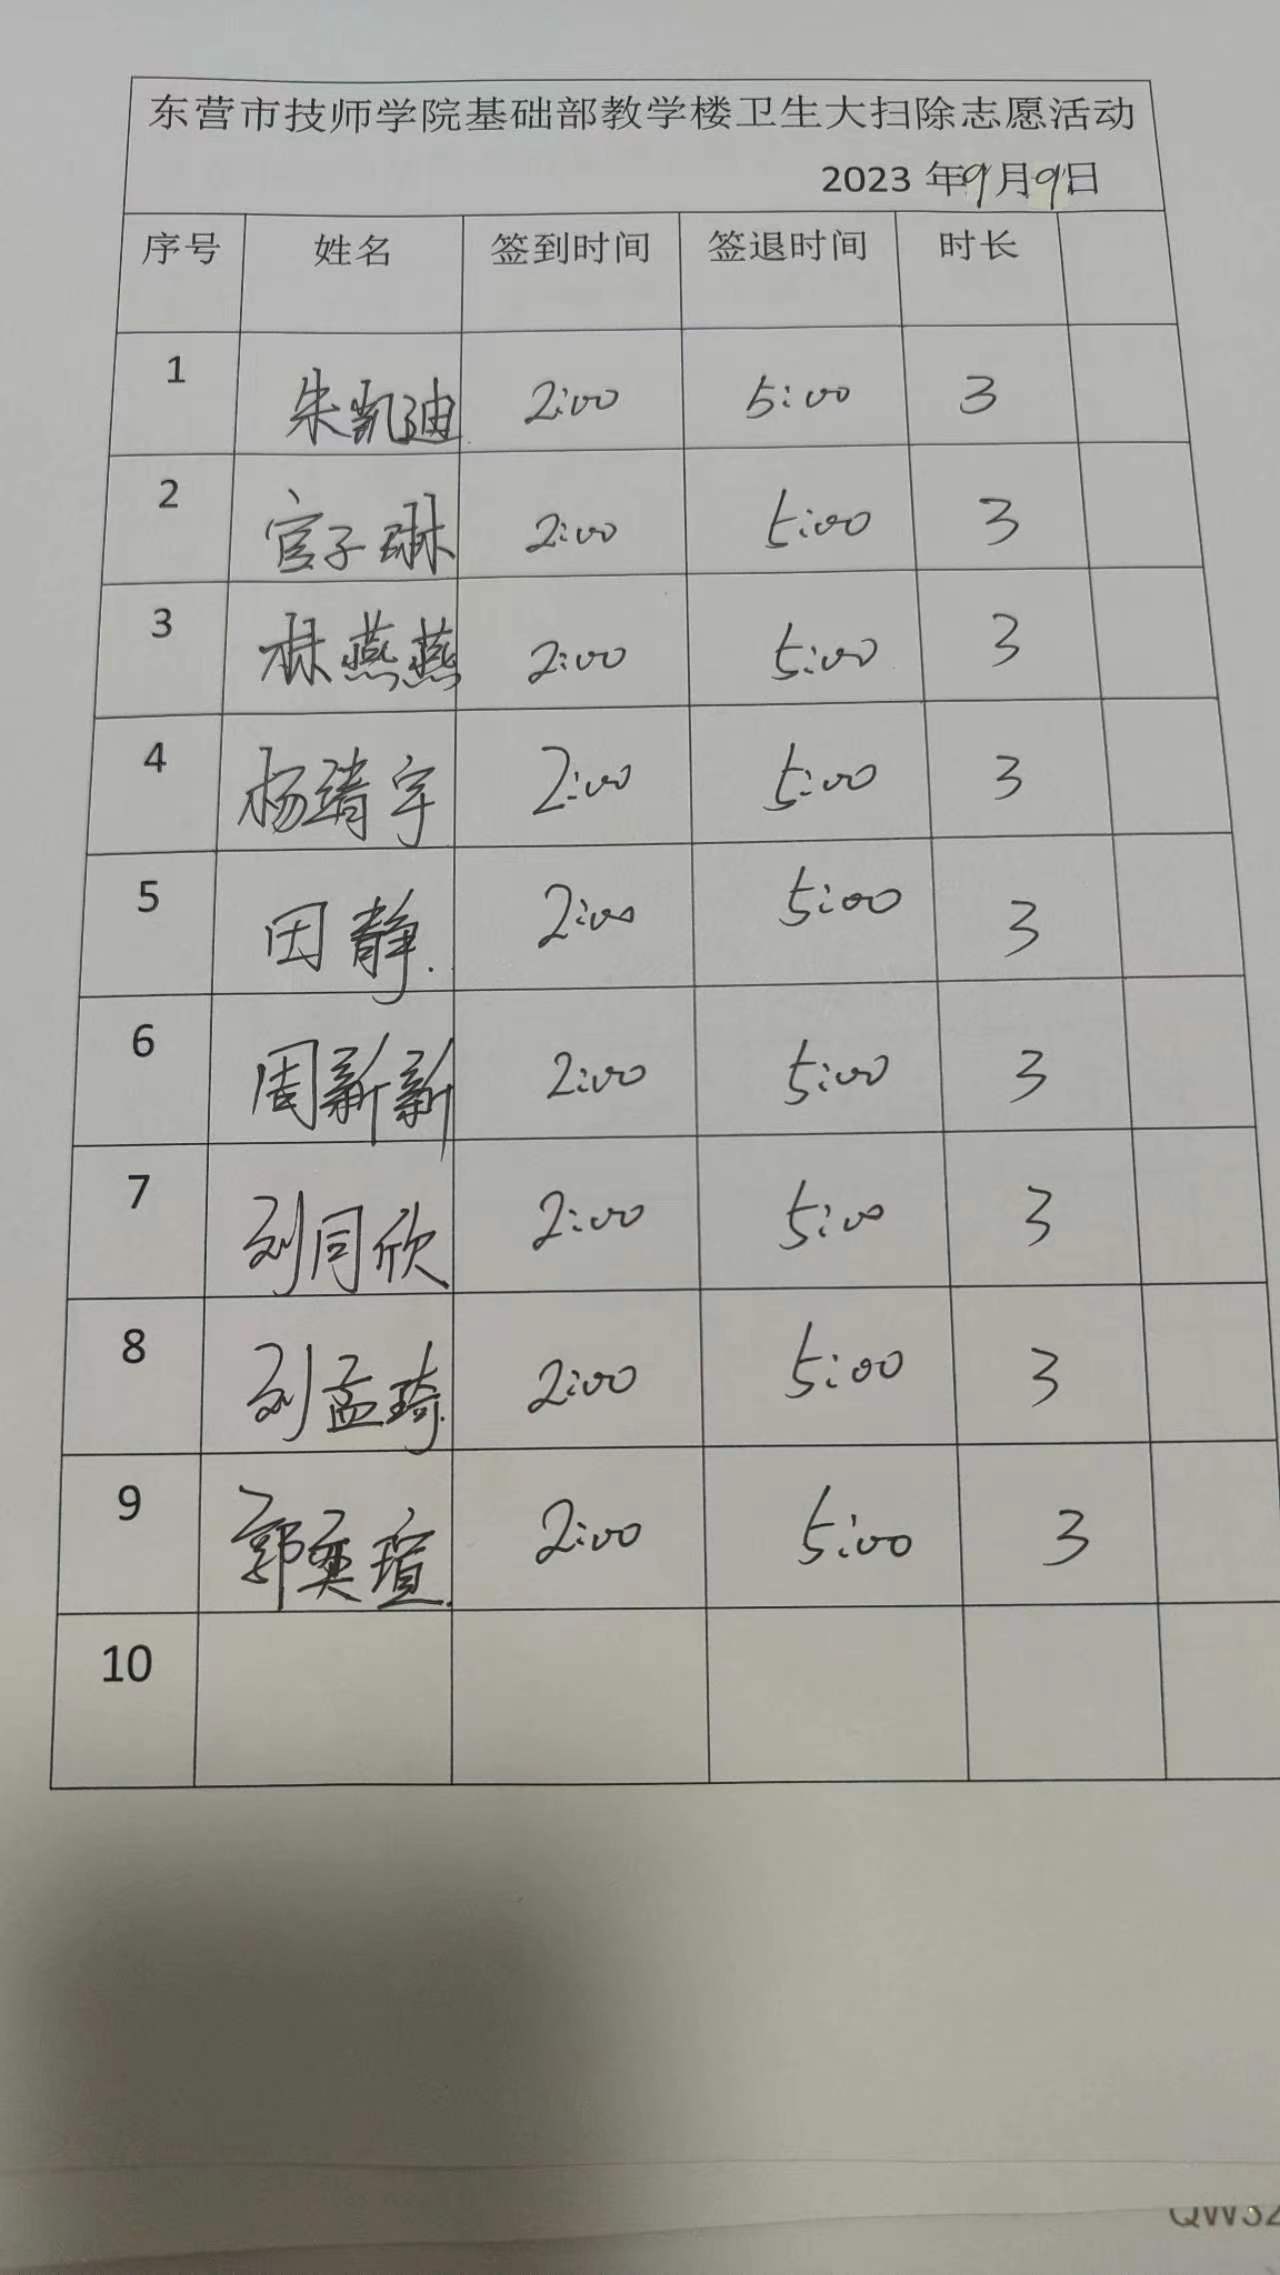 东营市技师学院基础部教学楼卫生大扫除志愿活动
2023 年9月9日
序号 姓名 签到时间 签退时间 时长
1 朱凯迪 2:00 5:00 3
2 官子琳 2:00 5:00 3
3 林燕燕 2:00 5:00 3
4 杨靖宇 2:00 5:00 3
5 田静. 2:00 5:00 3
6 周新新 2:00 5:00 3
7 刘同欣 2:00 5:00 3
8 刘孟琦 2:00 5:00 3
9 郭奕瑄 2:00 5:00 3
10